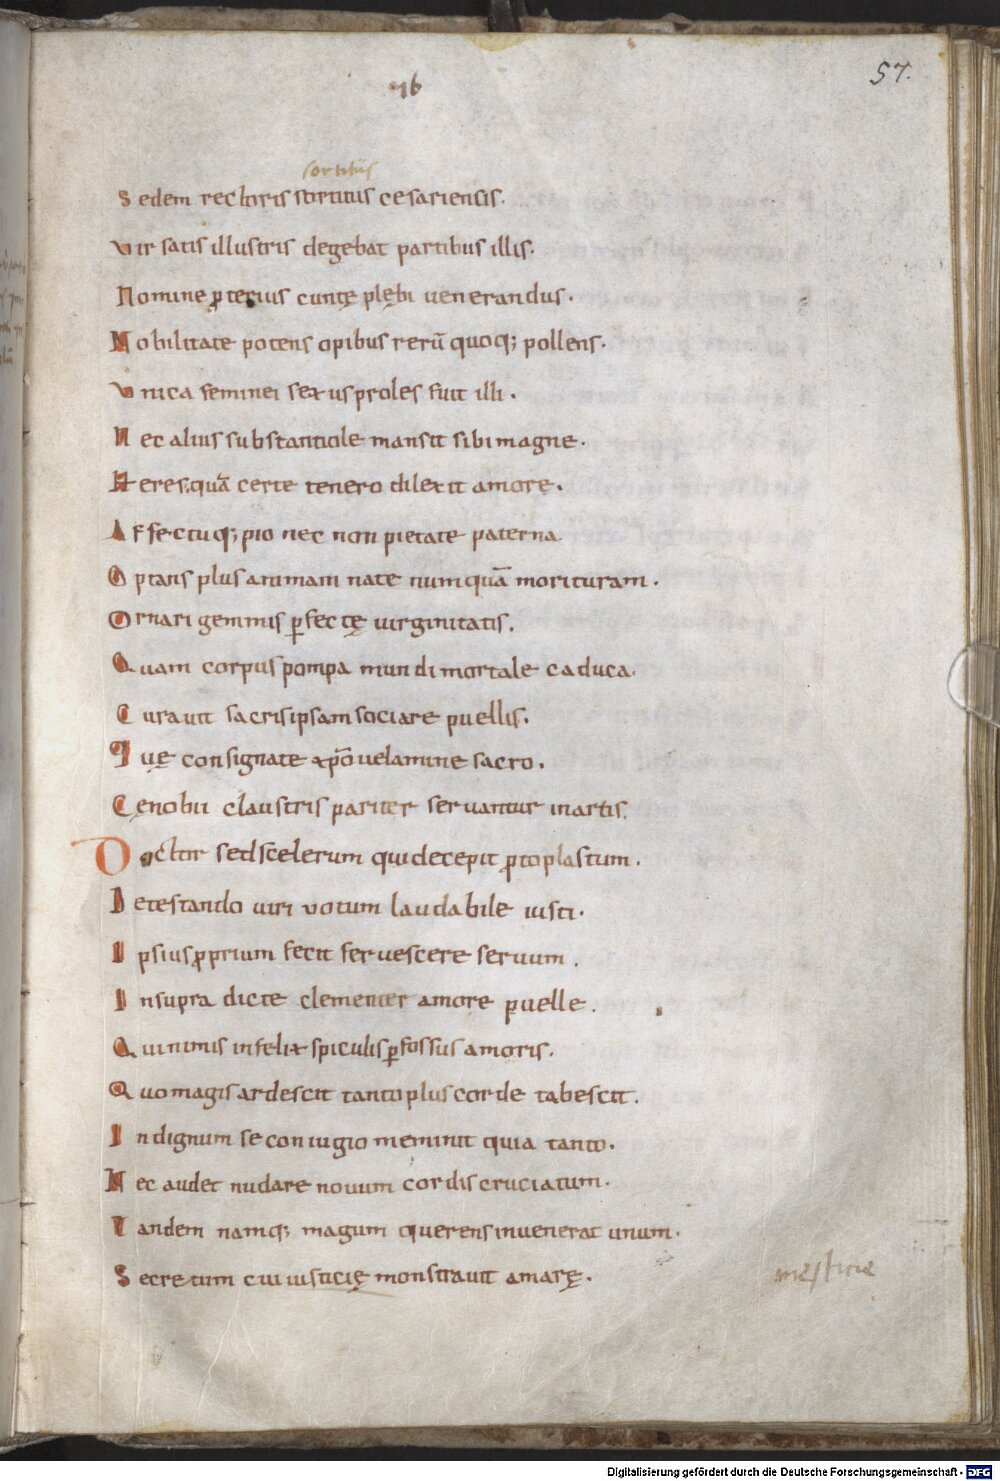 76
57.
sortitus
Sedem rectoris sortitus cesariensis.
Vir satis illustris degebat partibus illis.
Nomine ꝓterius cuntę plębi uenerandus.
Nobilitate potens opibus rerū quoq; pollens.
Vnica feminei sexus proles fuit illi.
Nec alius substantiole mansit sibi magne.
Heres. quā certe tenero dilexit amore.
Affectuq; pio nec non pietate paterna
Optans plus animam nate numquā morituram.
Ornari gemmis ꝑfectę uirginitatis.
Quam corpus pompa mundi mortale caduca.
Curauit sacris ipsam sociare puellis.
Quę consignate xp̄o uelamine sacro.
Cęnobii claustris pariter seruantur in artis.
Doctor sed scelerum qui decepit ꝓtoplastum.
Detestando uiri votum laudabile iusti.
Ipsius ꝓprium fecit feruescere seruum.
Insupra dicte clementer amore puelle.
Qui nimis infelix spiculis ꝑfossus amoris.
Quo magis ardescit tanto plus corde tabescit.
Indignum se coniugio meminit quia tanto.
Nec audet nudare nouum cordis cruciatum.
Tandem namq; magum querens inuenerat unum.
Secretum cui iusticię monstrauit amarę.
mesticie
Digitalisierung gefördert durch die Deutsche Forschungsgemeinschaft - DFG